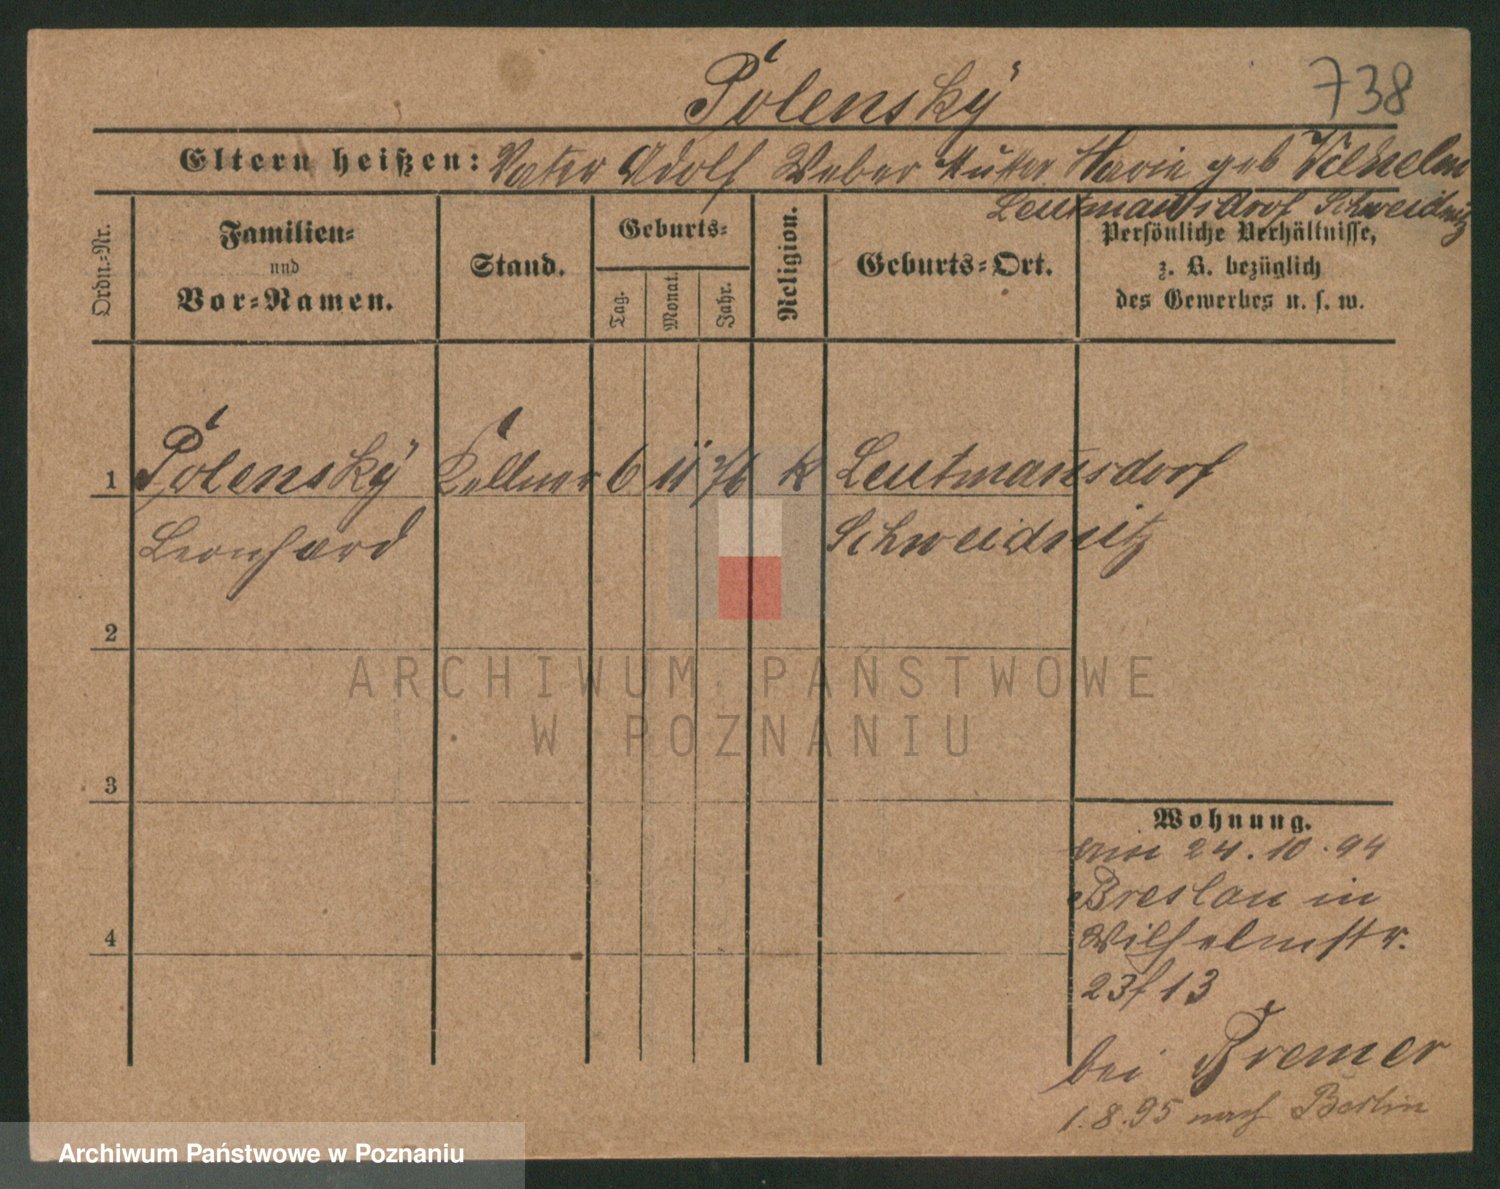 Polensky
738
Eltern heißen: Vater Adolf Weber Mutter Marie geb Wilhelm
Leutmansdorf Schweidnitz
Ordn.-Nr.
Familien-
und
Vor-Namen.
Stand.
Geburts-
Tag.
Monat.
Jahr.
Religion.
Geburts-Ort.
Persönliche Verhältnisse,
z. B. bezüglich
des Gewerbes u. s. w.
1 Polensky Kellner 6 11 76 k Leutmansdorf
Leonhard Schweidnitz
2
3
4
Wohnung.
24.10.94
Breslau in
Wilhelmstr.
23 13
bei Bremer
1.8.95 nach Berlin
ARCHIWUM PAŃSTWOWE
W POZNANIU
Archiwum Państwowe w Poznaniu